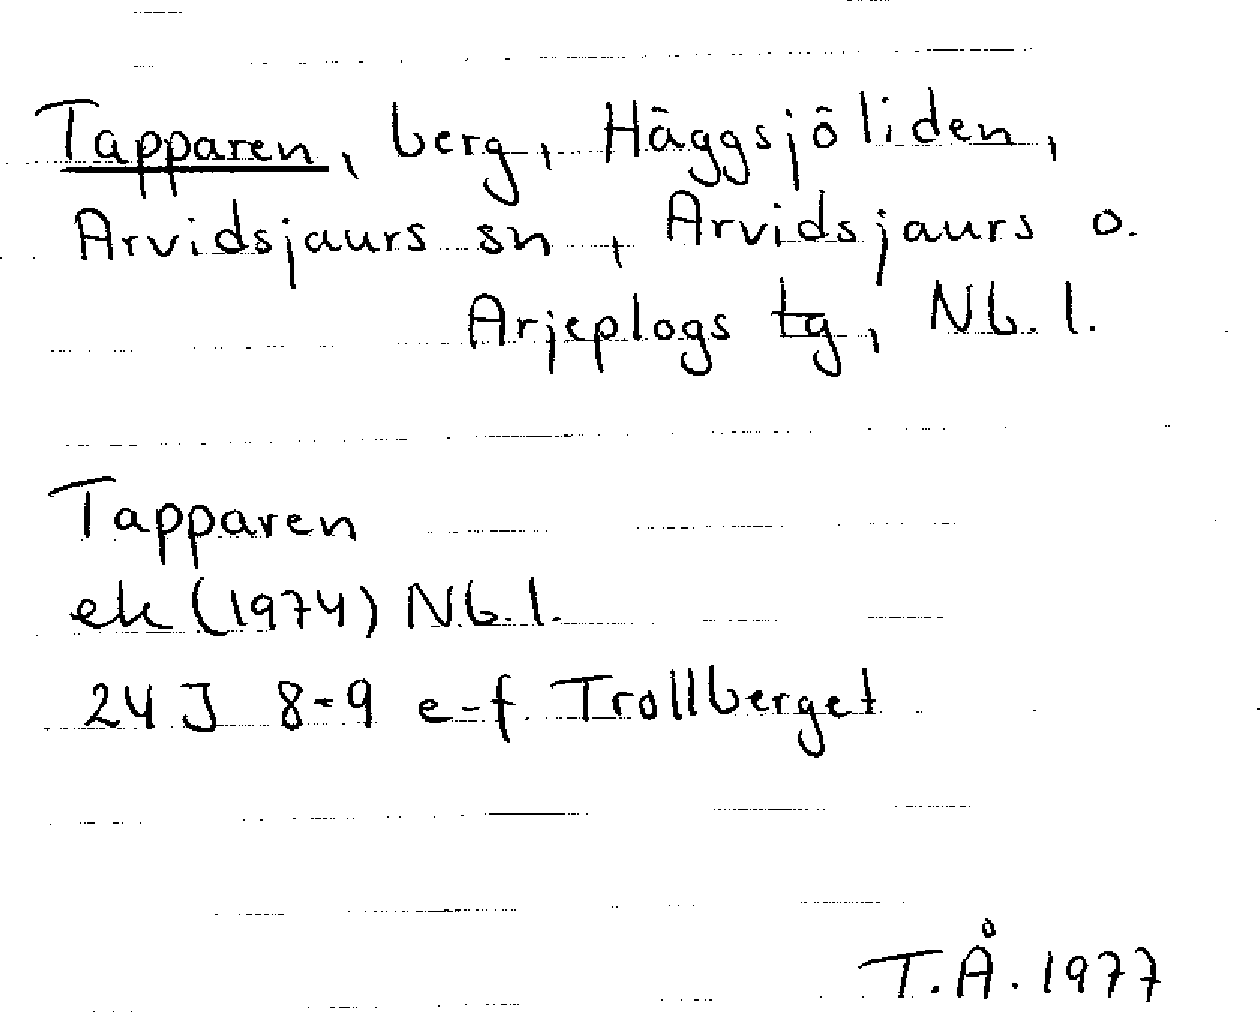 Tapparen, berg, Häggsjöliden,
Arvidsjaurs sn, Arvidsjaurs o.
Arjeplogs tg, Nb. l.
Tapparen
ek (1974) Nb. l.
24 J 8-9 e-f Trollberget
T.Å. 1977